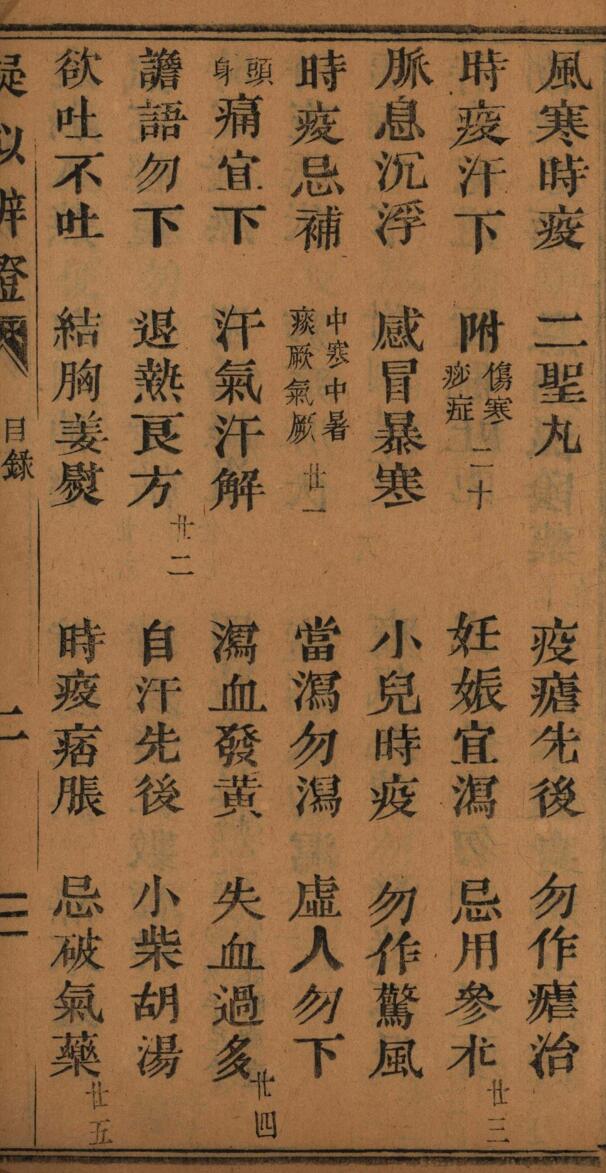 風寒時疫 二聖丸 疫瘧先後 勿作瘧治
時疫汗下 附傷寒痧症二十 妊娠宜瀉 忌用參朮廿三
脈息沉浮 感冒暴寒 小兒時疫 勿作驚風
時疫忌補 中寒中暑痰厥氣厥廿一 當瀉勿瀉 虛人勿下
頭身痛宜下 汗氣汗解 瀉血發黃 失血過多廿四
譫語勿下 退熱良方廿二 自汗先後 小柴胡湯
欲吐不吐 結胸姜熨 時疫痞脹 忌破氣藥廿五
疑似辨證 目錄 二